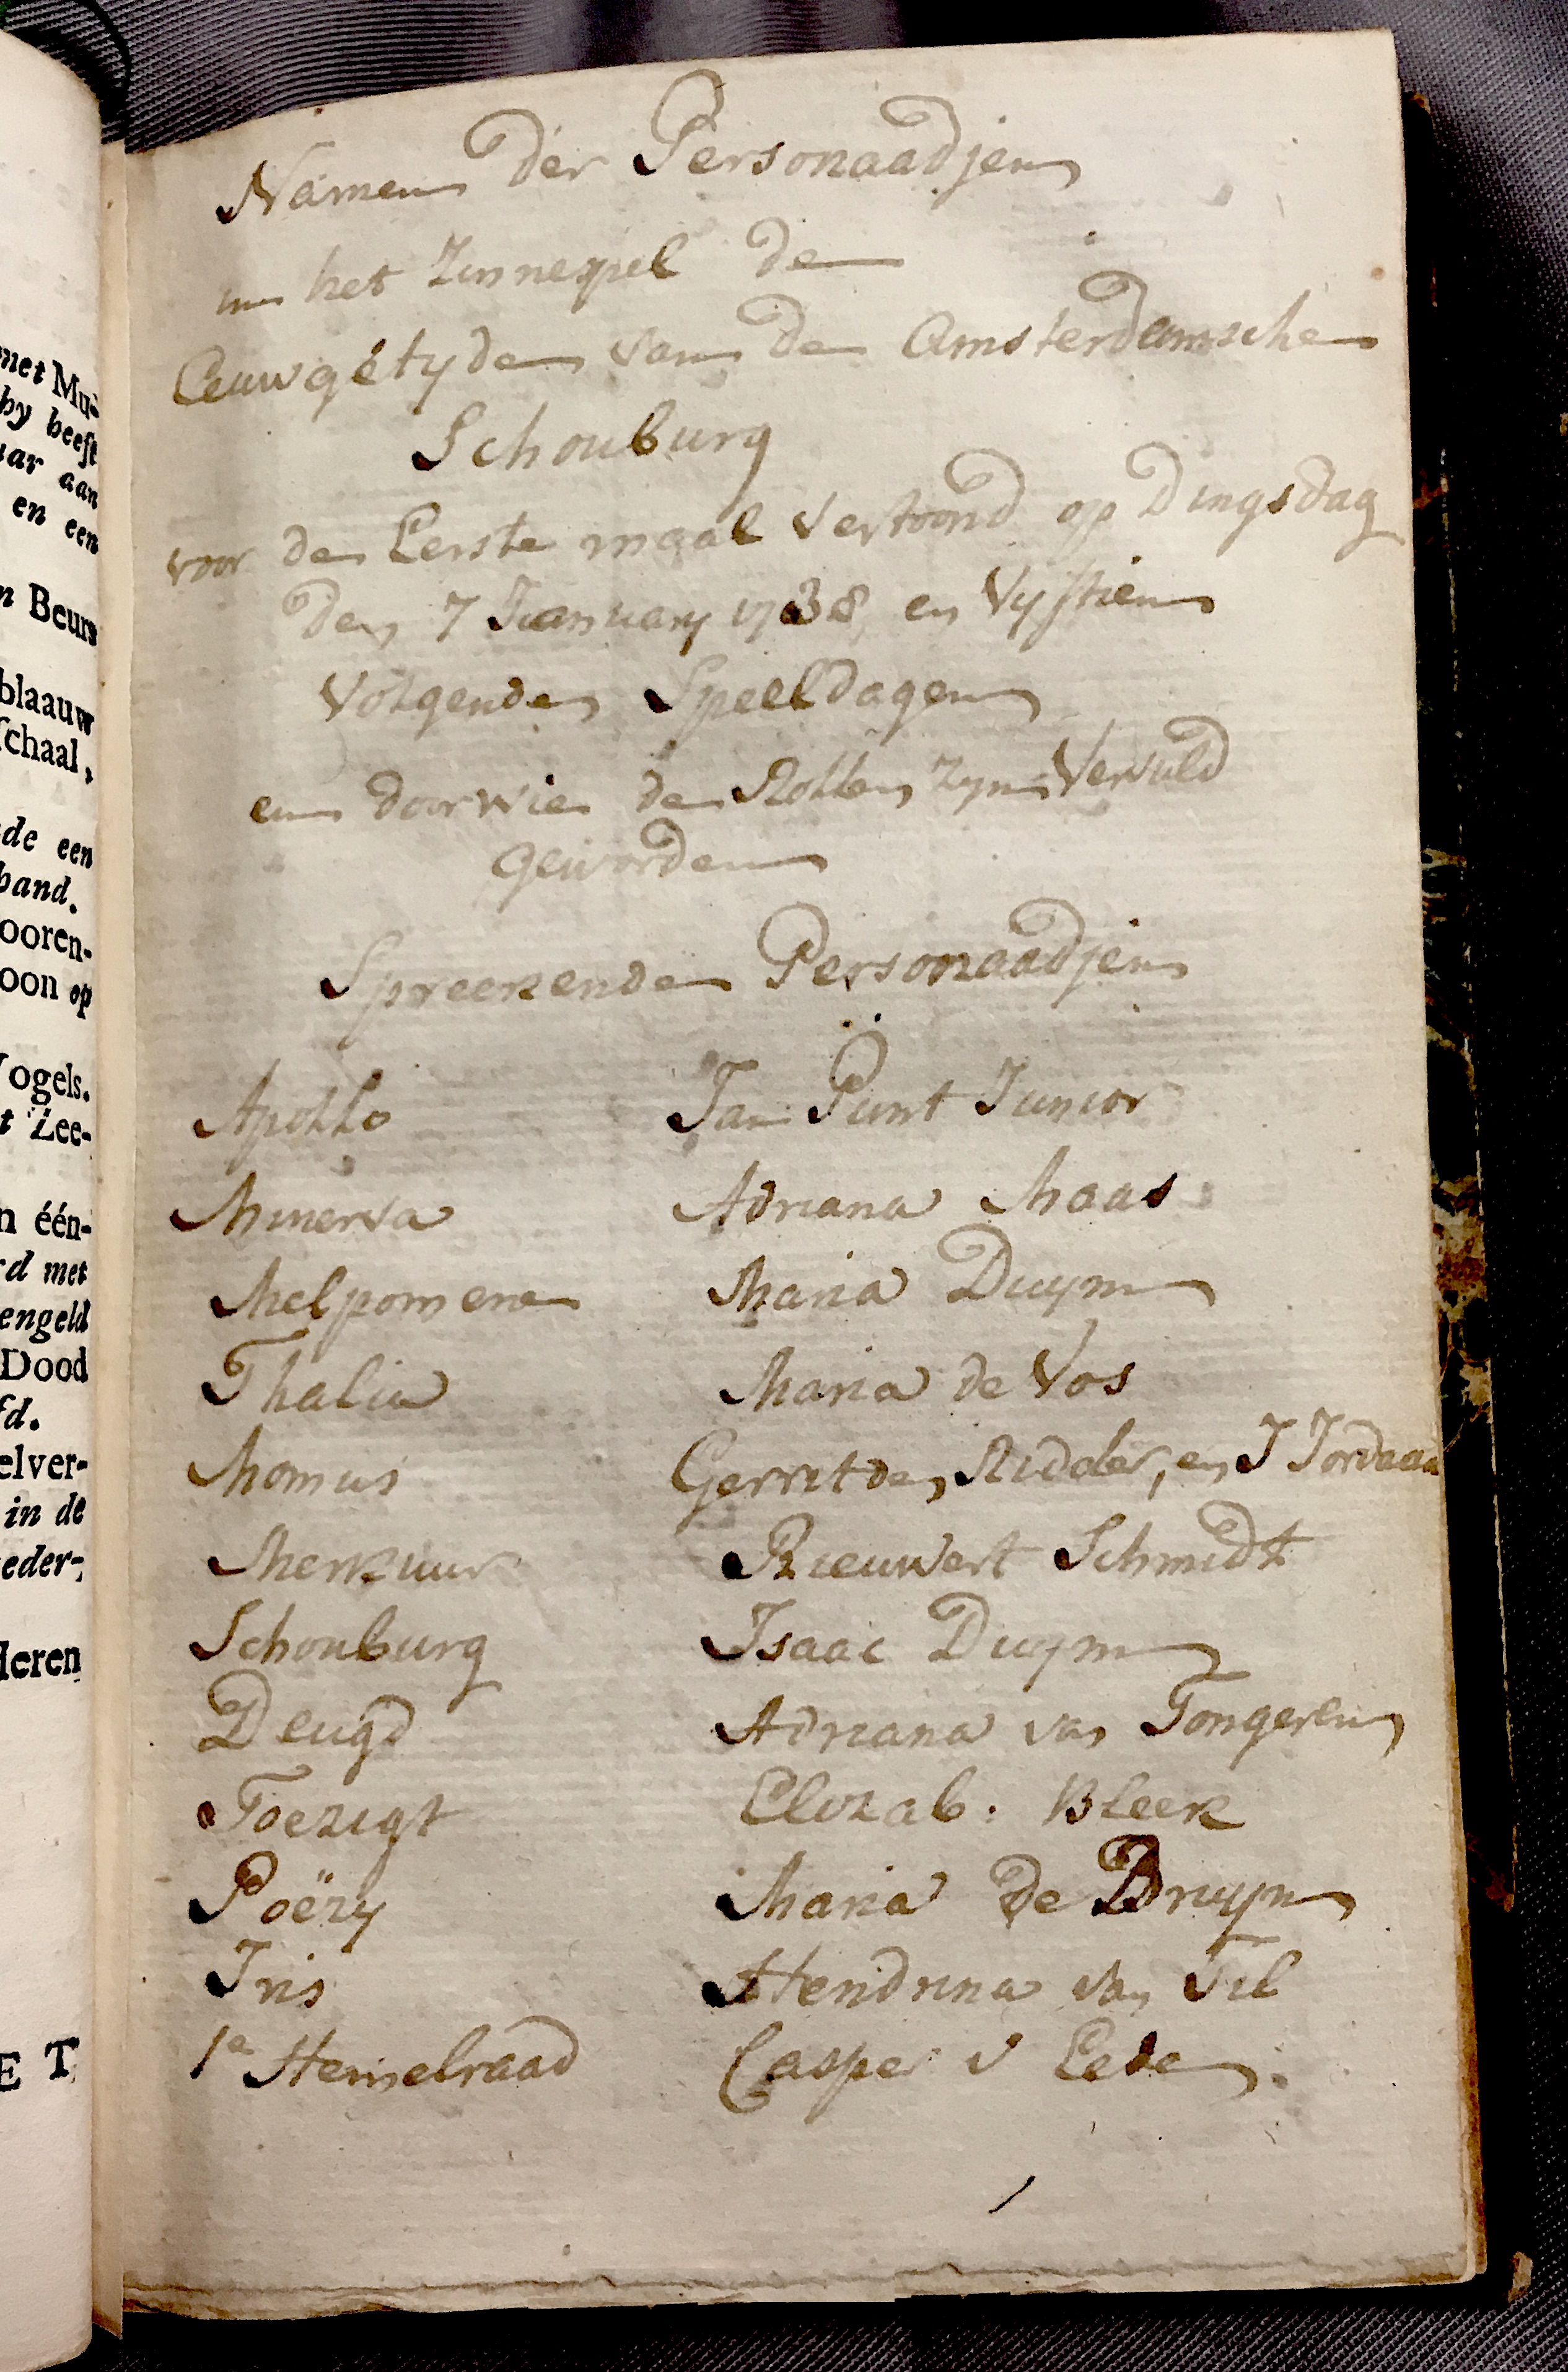 met Mu-
hy heeft
aar aan
en een
n Beurs
blaauw
schaal,
de een
band.
ooren-
oon op
Vogels.
t Zee-
n één-
rd met
engeld
Dood
fd.
elver-
in de
eder-
deren
E T
Namen der Personaadjen
in het Zinnespel de
Eeuwgetyde van de Amsterdamsche
Schouburg
voor de Eerste maal Vertoond op Dingsdag
den 7 January 1738, en Vyftien
Volgende Speeldagen
en door wie de Rollen zyn Vervuld
geworden
Spreekende Personaadjen
Apollo Jan Punt Junior
Minerva Adriana Maas
Melpomene Maria Duym
Thalia Maria de Vos
Momus Gerrit de Ridder, en J Jordaan
Merkuur Rieuwert Schmidt
Schouburg Isaac Duym
Deugd Adriana van Tongeren
Toezigt Elizab. Bleek
Poëzy Maria De Bruyn
Iris Hendrina van Til
1e Hemelraad Casper v Eede.